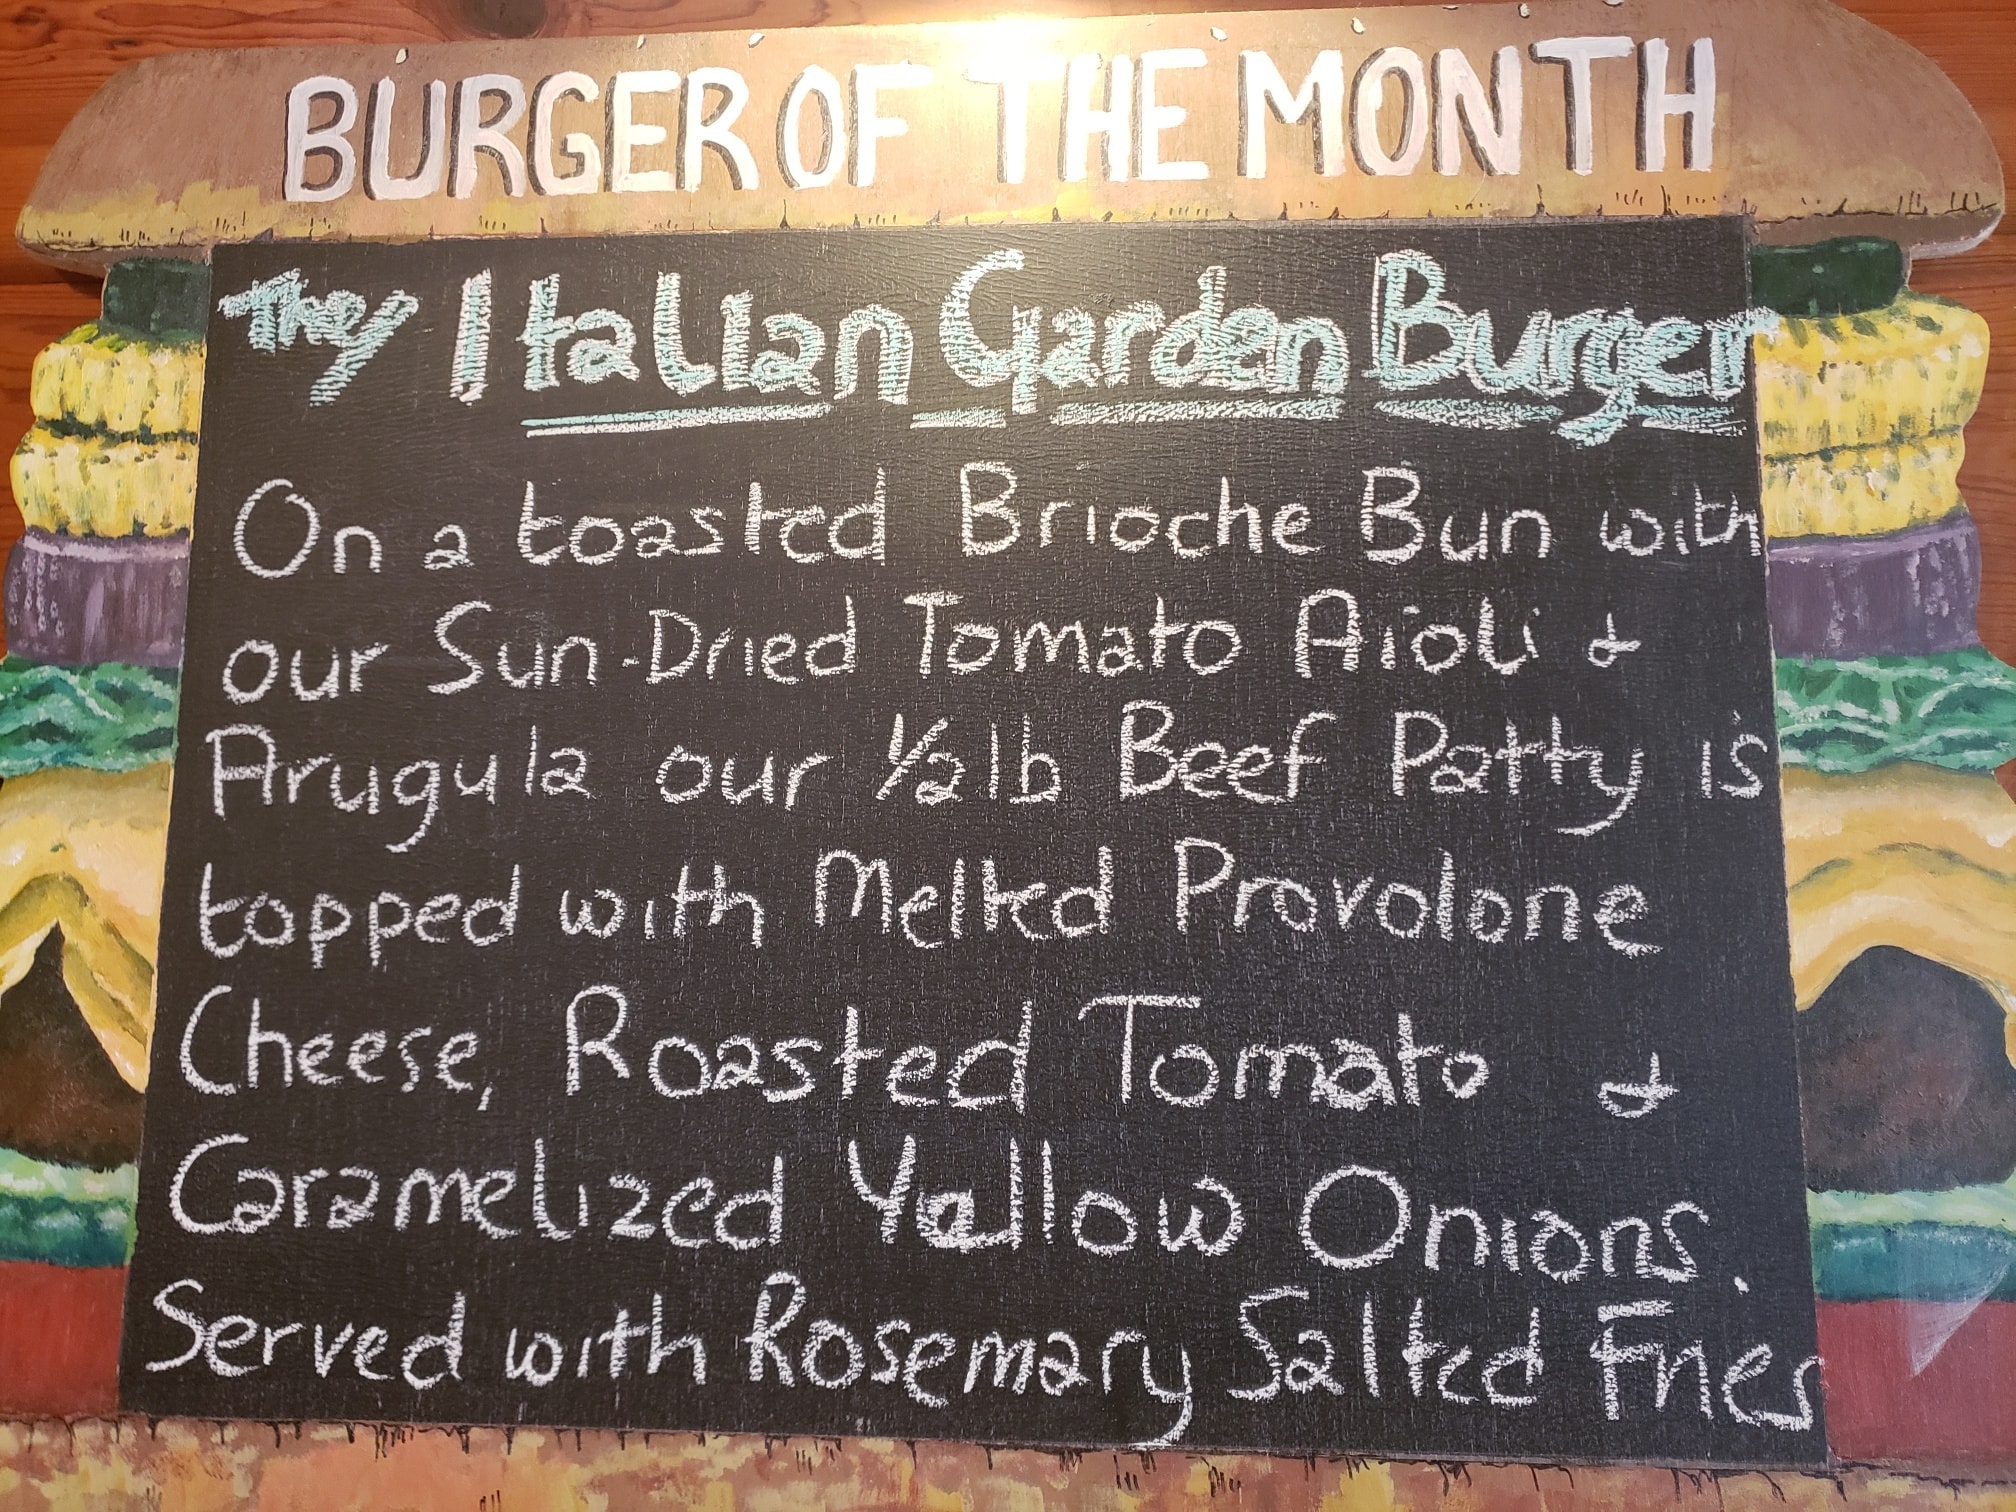 BURGER OF THE MONTH
The Italian Garden Burger
On a toasted Brioche Bun with
our Sun-Dried Tomato Aioli &
Arugula our 1/2lb Beef Patty is
topped with Melted Provolone
Cheese, Roasted Tomato &
Caramelized Yellow Onions.
Served with Rosemary Salted Fries